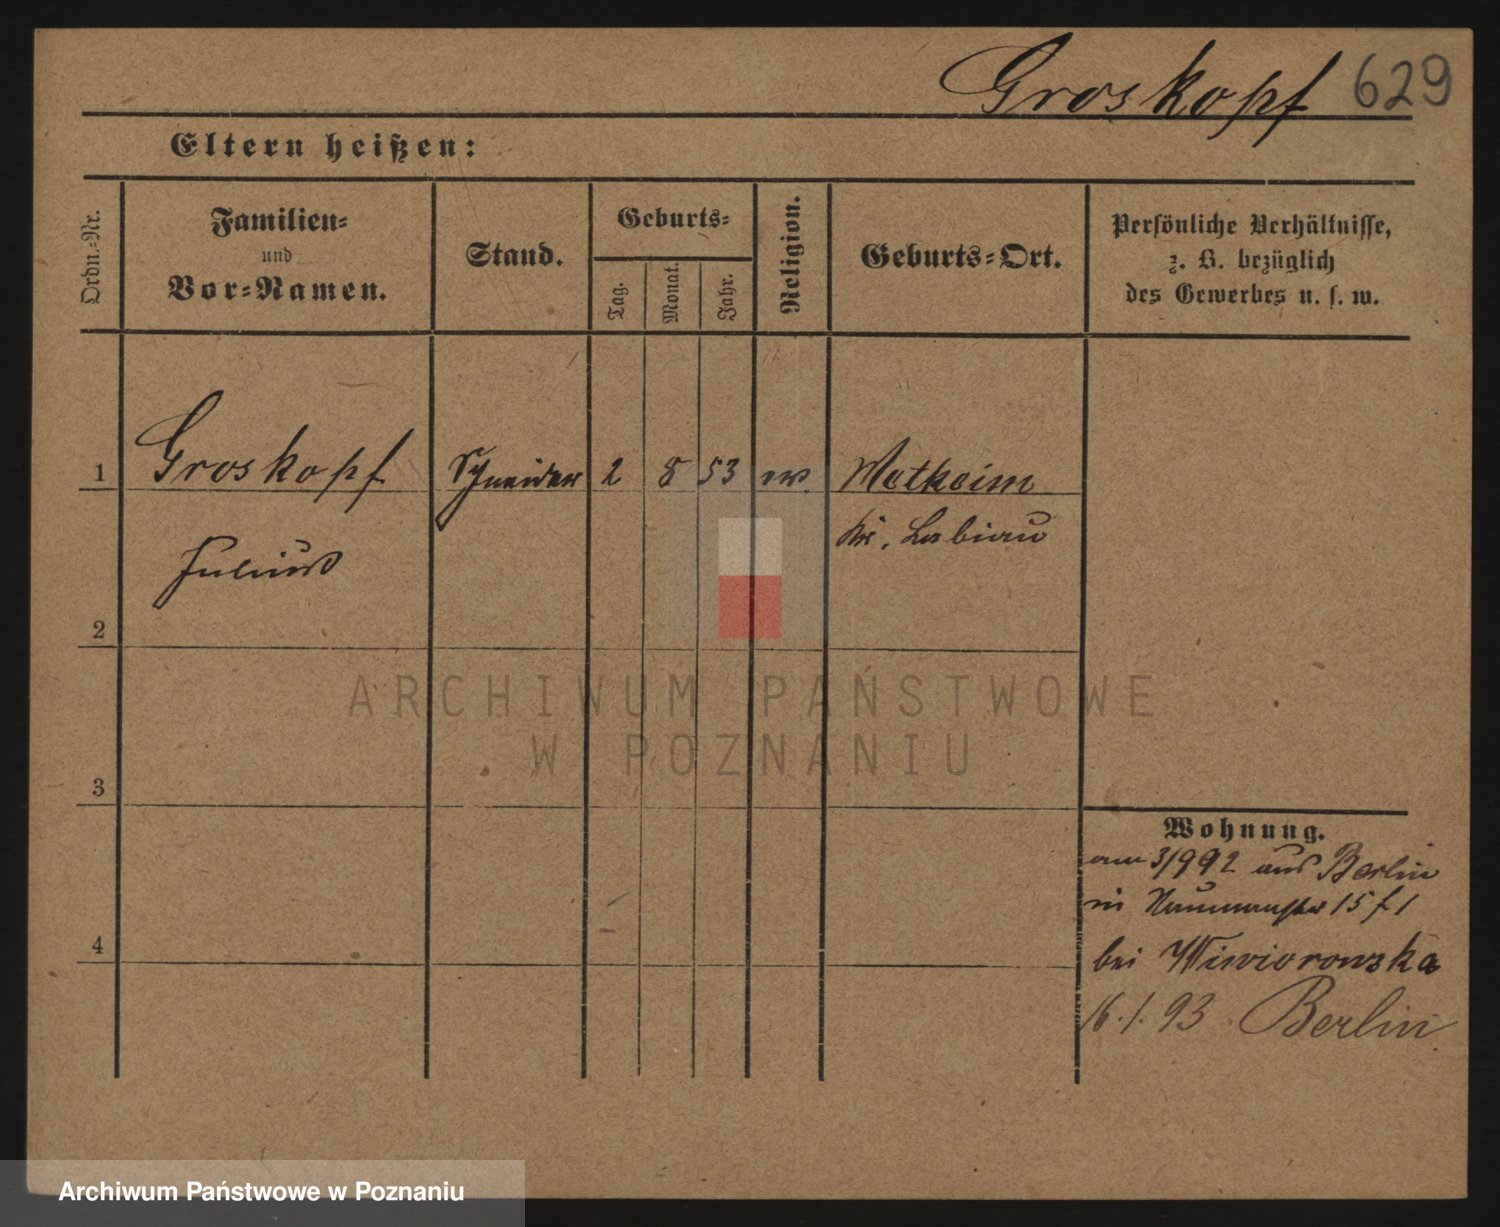 Groskopf 629
Eltern heißen:
Ordn.-Nr.
Familien-
und
Vor-Namen.
Stand.
Geburts-
Tag.
Monat.
Jahr.
Religion.
Geburts-Ort.
Persönliche Verhältnisse,
z. B. bezüglich
des Gewerbes u. s. w.
1 Groskopf Schneider 2 8 53 ev. Metkeim
Kr. Labiau
Julius
2
ARCHIWUM PAŃSTWOWE
W POZNANIU
3
Wohnung.
am 3/9 92 aus Berlin
in 15 f 1
4
bei Wiwiorowska
16.1.93 Berlin
Archiwum Państwowe w Poznaniu